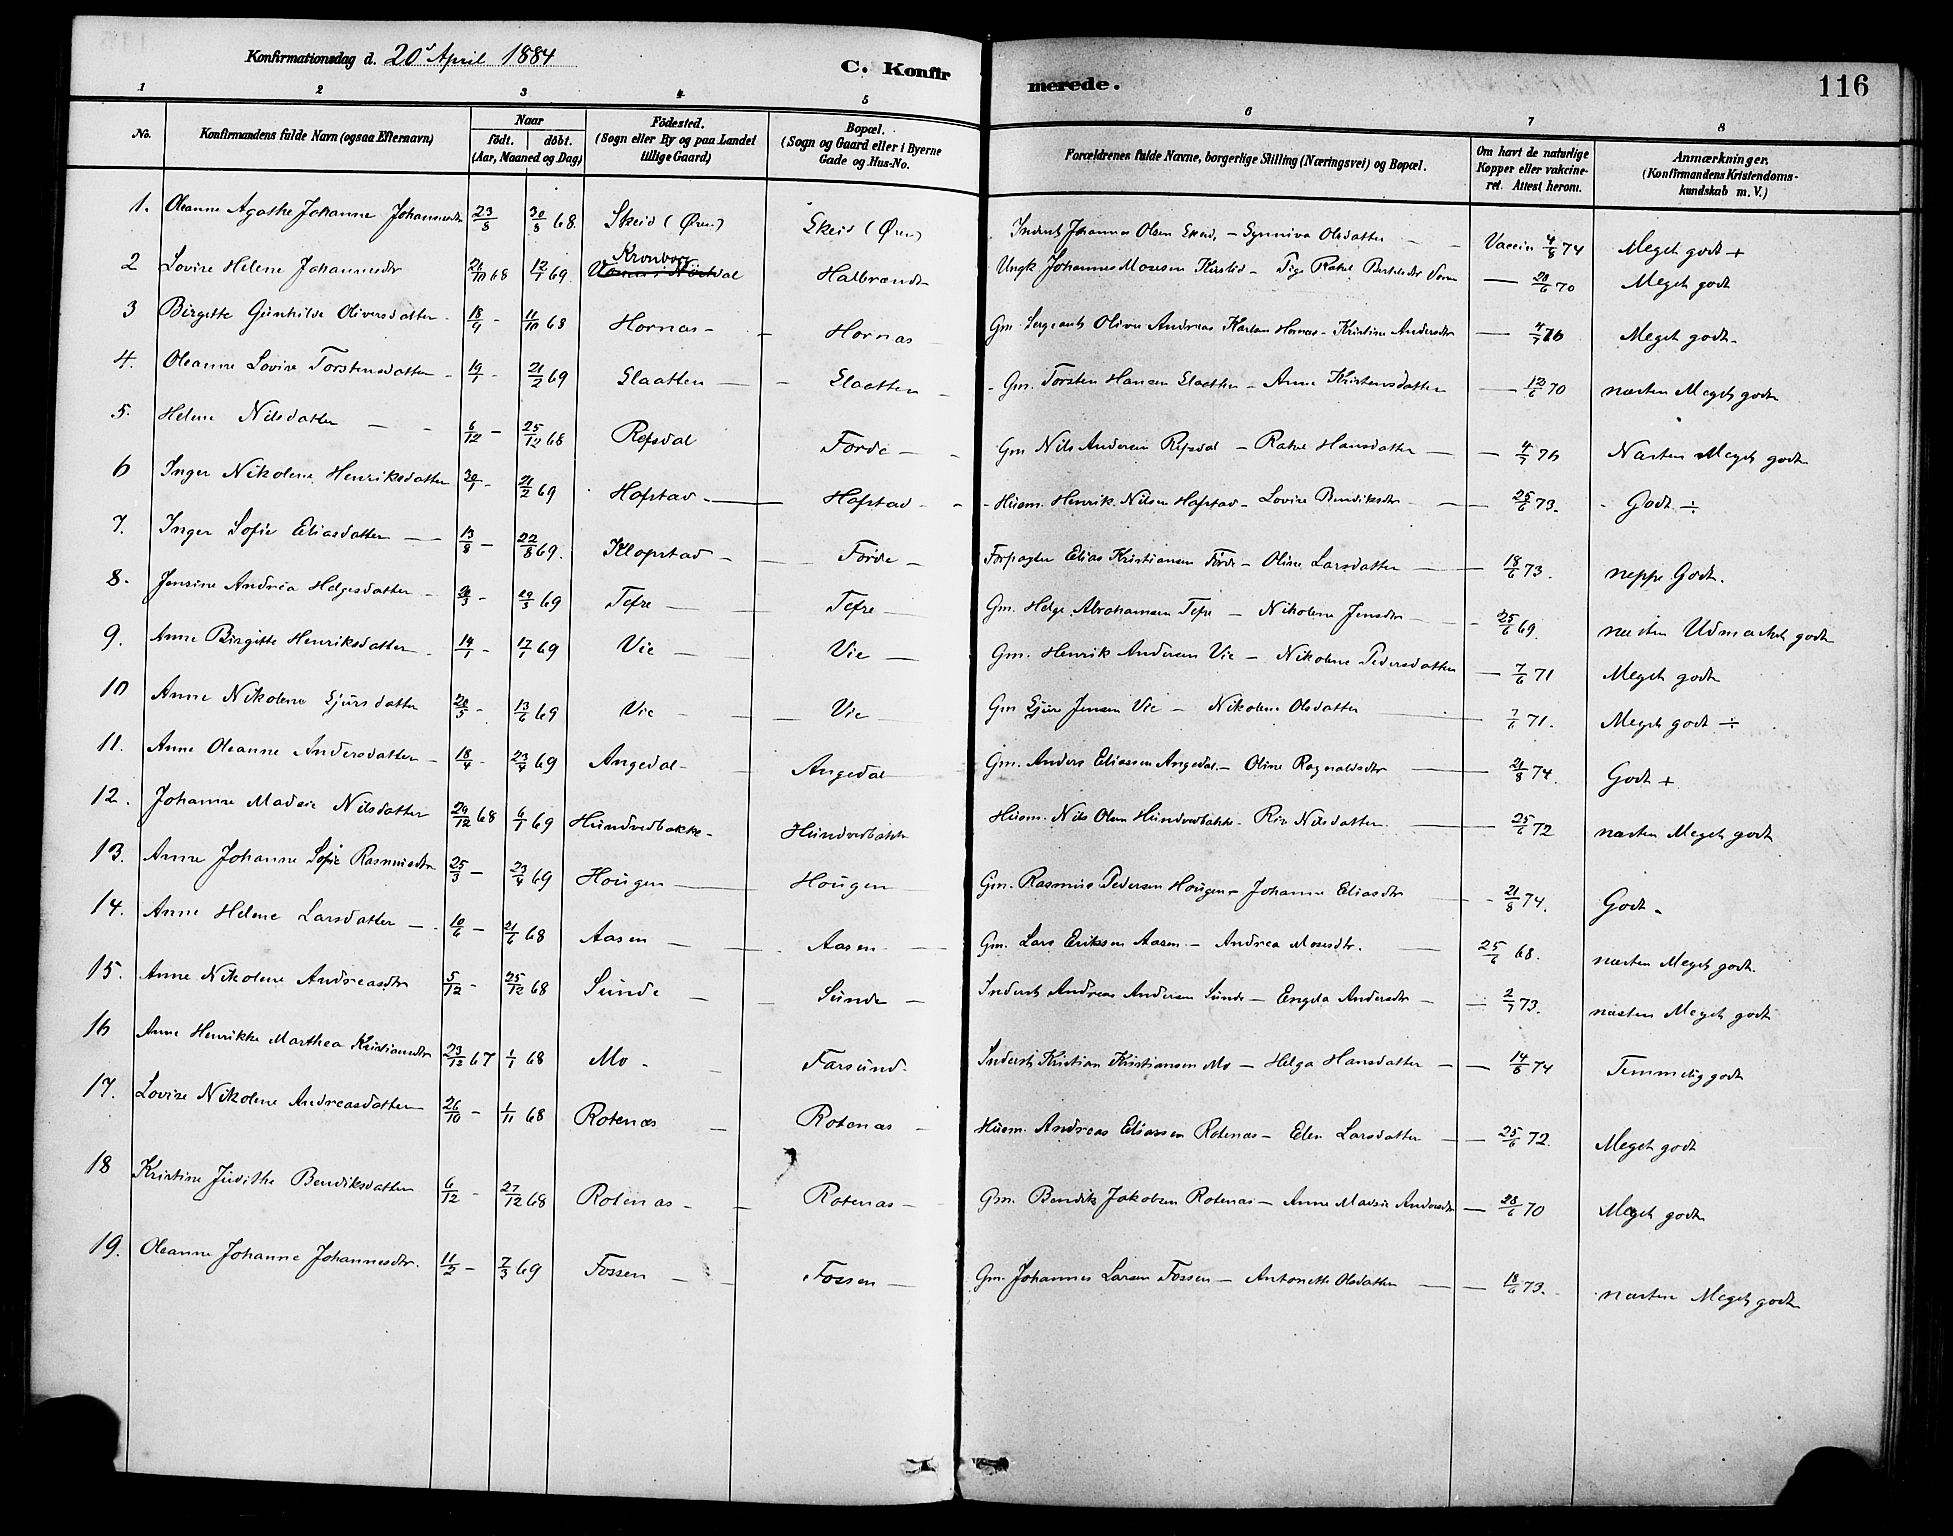 Konfirmationsdag d. 20d April 1884
C. Konfirmerede.
116
1 2 3 4 5 6 7 8
No. Konfirmandens fulde Navn (ogsaa Efternavn) Naar födt. döbt. (Aar, Maaned og Dag) Födested. (Sogn eller By og paa Landet tillige Gaard) Bopæl. (Sogn og Gaard eller i Byerne Gade og Hus-No. Forældrenes fulde Navne, borgerlige Stilling (Næringsvei) og Bopæl. Om havt de naturlige Kopper eller vakcineret. Attest herom. Anmærkninger. (Konfirmandens Kristendomskundskab m. V.)
1. Oleanne Agathe Johanne Johannesdtr 23/8 30/8 68. Skeid (Øren) Skeid (Øren) Inderst Johannes Olsen Skeid, - Synniva Olsdatter - Vaccin 4/8 74 Meget godt +
2 Lovise Helene Johannesdtr 21/10 68 12/1 69. Kronborg Halbrendt Ungk Johannes Mosesen - Pige Rakel Bertelsdtr - 28/6 70 Meget godt
3 Birgitte Gunhilde Oliversdatter - 18/9 - 11/10 68 Hornæs - Hornæs Gm. Sergeant Oliver Andreas Karlsen Hornæs - Kristine Andersdtr - 4/7 76 Meget godt -
4. Oleanne Lovise Torstensdatter - 19/1 - 21/2 69 Slaatten - Slaatten - Gm. Torsten Hansen Slaatten - Anne Kristensdatter - 12/6 70 næsten Meget godt
5. Helene Nilsdatter - - 6/12 - 25/12 68 Refsdal Førde - Gm Nils Andersen Refsdal - Rakel Hansdatter - 4/7 76 Næsten Meget godt
6 Inger Nikolene Henriksdatter 30/1 - 21/2 69 Hafstad - Hafstad - - Husm. Henrik Nilsen Hafstad - Lovise Bendiksdtr - 25/6 73. - Godt ÷
7. Inger Sofie Eliasdatter - 13/8 - 22/8 69. Klopstad - Førde - Forpagter Elias Kristiansen Førde - Oline Larsdatter - 18/6 73. neppe Godt.
8. Jensine Andrea Helgesdatter - 20/3 - 29/3 69 Tefre - Tefre - Gm. Helge Abrahamsen Tefre - Nikolene Jensdtr - 25/6 69. næsten Udmærket godt
9. Anne Birgitte Henriksdatter - 14/1 - 17/1 69 Vie - Vie - Gm. Henrik Andersen Vie - Nikoline Pedersdatter - 7/6 71 Meget godt
10 Anne Nikolene Gjursdatter 20/5 - 13/6 69 Vie - Vie - Gm Gjur Jensen Vie - Nikolene Olsdatter - 7/6 71. Meget godt ÷
11. Anne Oleanne Andersdatter - 18/4 - 23/4 69 Angedal - Angedal Gm. Anders Eliassen Angedal - Oline Ragnaldsdtr - 21/8 74. Godt +
12. Johanne Madsie Nilsdatter 29/12 68 6/1 69 Hundvedbakke - Hundvedbakke Husm. Nils Olsen Hundvedbakke - Nilsdatter - 25/6 72 næsten Meget godt
13. Anne Johanne Sofie Rasmusdtr 25/3 - 23/4 69 Hougen - Hougen Gm. Rasmus Pedersen Hougen - Johanne Eliasdtr - 21/8 74. Godt -
14. Anne Helene Larsdatter - 10/6 - 21/6 68 Aasen - Aasen - Gm. Lars Eriksen Aasen - Andrea Mosesdtr. - 25/6 68. næsten Meget godt.
15. Anne Nikolene Andreasdtr 5/12 - 25/12 68 Sunde - Sunde - Inderst Andreas Andersen Sunde - Engela Andersdtr - 2/7 73. næsten Meget godt
16 Anne Henrikke Marthea Kristiansdtr 23/12 67 1/1 68 Mo - Farsund - Inderst Kristian Kristiansen Mo - Helga Hansdatter - 14/8 74 Temmelig godt
17. Lovise Nikolene Andreasdatter 26/10 - 1/11 68 Rotenæs - Rotenæs - Husm. Andreas Eliassen Rotenæs - Elen Larsdatter - 25/6 72. Meget godt
18 Kristine Judithe Bendiksdatter 6/12 - 27/12 68 Rotenæs - Rotenæs - Gm. Bendik Jakobsen Rotenæs - Anne Madsie Andersdtr - 28/6 70 Meget godt
19. Oleanne Johanne Johannesdtr. 11/2 - 7/3 69 Fossen - Fossen - Gm. Johannes Larsen Fossen - Antonette Olsdatter - 18/6 73. næsten Meget godt